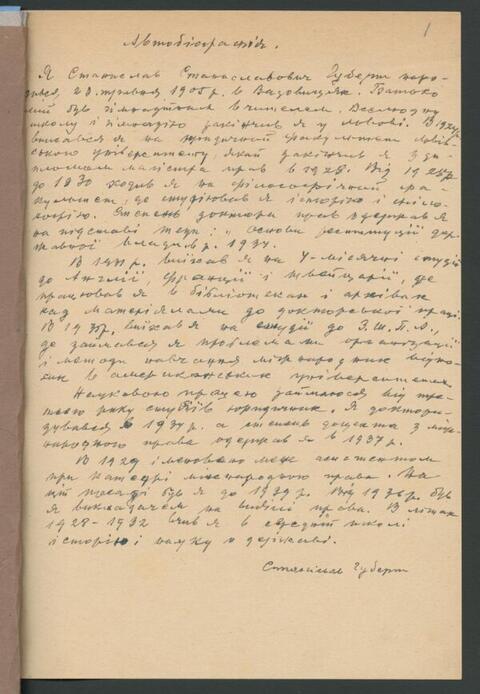 1
Автобіографія.
Я Станіслав Станіславович Губерт наро-
дився, 28. травня 1905 р. в Вадовицях. Батько
мій був гімназіяльним вчителем. Вселюдну
школу і гімназію закінчив я у Львові. В 1924 р.
вписався я на юридичний факультет Львів-
ського університету, який закінчив я з ди-
пломом магістра прав в 1928. Від 1925 р.
до 1930 ходив я на філософічний фа-
культет, де студіював я історію і філо-
софію. Ступень доктора прав одержав я
на підставі тези: „Основи реституції дер-
жавної влади" р. 1934.
В 1931 р. виїхав я на місячні студії
до Англії, Франції і Швейцарії, де
працював я в бібліотеках і архівах
над матеріялами до докторської праці.
В 1937 р. виїхав я на студії до З.Ш.П.А.,
де займався я проблемами організації
і методи навчання міжнародних відно-
син в американських університетах.
Науковою працею займаюся від тре-
тього року студіїв юридичних. Я доктори-
зувався в 1934 р. а ступень доцента з між-
народного права одержав я в 1937 р.
В 1929 іменовано мене асистентом
при катедрі міжнародного права. На
цій посаді був я до 1939 р. Від 1936 р. був
я викладачем на виділі права. В літах
1928-1932 вчив я в середній школі
історію і науку о державі.
Станіслав Губерт